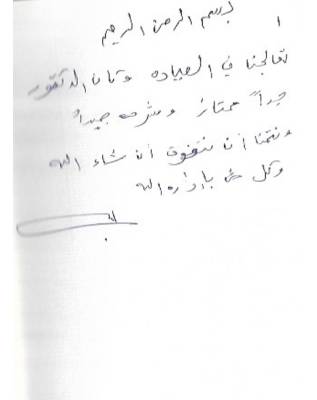 بسم الله الرحمن الرحيم
تعالجنا في العياده وكان الدكتور
جداً ممتاز وشرحه جيداً
ونتمنا أن نتفوق أن شاء الله
وكل شي بإراده الله